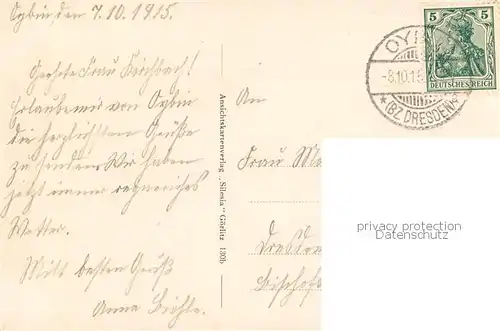 Oybin, den 7.10.1915.
Geehrte Frau Kirschbach!
Erlaube mir von Oybin
die herzlichsten Grüße
zu senden. Wir haben
jetzt immer regnerisches
Wetter.
Mitt besten Gruß
Anna
Ansichtskartenverlag „Silesia" Görlitz
An
Frau
Dresden
Bischofs
5 5
DEUTSCHES REICH
OY
-8.10.15
*(BZ. DRESDEN)*
privacy protection
Datenschutz